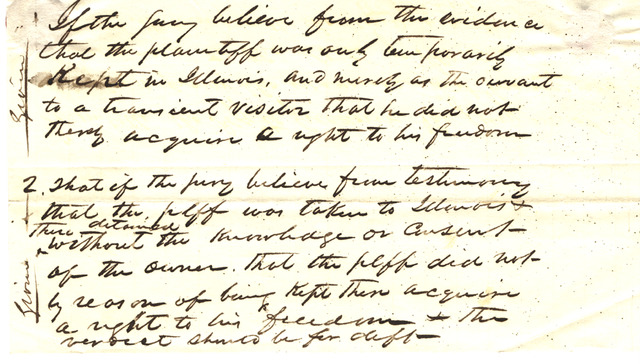 If the jury believe from the evidence
that the plaintiff was only temporarily
kept in Illinois, and merely as the servant
to a transient visitor that he did not
thereby acquire a right to his freedom
Given
2. That if the jury believe from testimony
that the plff was taken to Illinois &
there detained
without the knowledge or consent
of the owner. that the plff did not
by reason of being kept there acquire
a right to his freedom & the
verdict should be for deft
Given